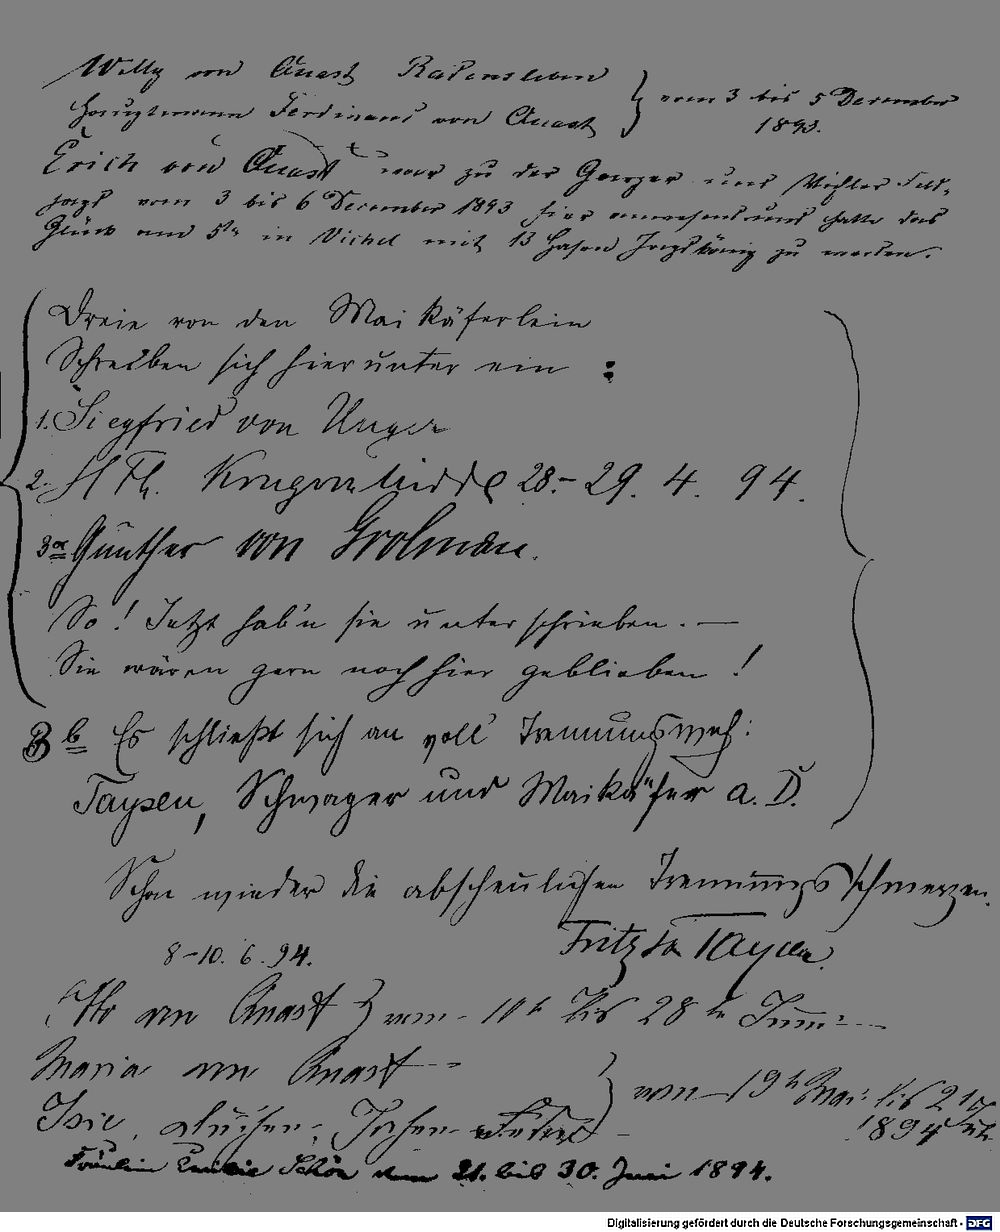 Willy von Quast Radensleben
Hauptmann Ferdinand von Quast } vom 3 bis 5 December
1893.
Erich von Quast war zu der Ganzer und Vichler Feld-
jagd vom 3 bis 6 December 1893 hier anwesend und hatte das
Glück am 5ten in Vichel mit 13 Hasen Jagdkönig zu werden.
Dreie von den Maikäferlein
Schreiben sich hierunter ein :
1. Siegfried von Unger
2. 28.-29. 4. 94.
3a Günther von Grolman.
So! Jetzt hab'n sie unterschrieben. —
Sie wären gern noch hier geblieben!
3b Es schließt sich an voll Trennungsweh:
Taysen, Schwager und Maikäfer a. D.
Schon wieder die abscheulichen Trennungsschmerzen.
8-10. 6. 94. Fritz von Taysen.
Otto von Quast } vom 10t bis 28ten Juni
Maria von Quast
vom 19t Mai bis 21
Isie, Jochen
1894
Fräulein Emilie Schön vom 21. bis 30. Juni 1894.
Digitalisierung gefördert durch die Deutsche Forschungsgemeinschaft - DFG